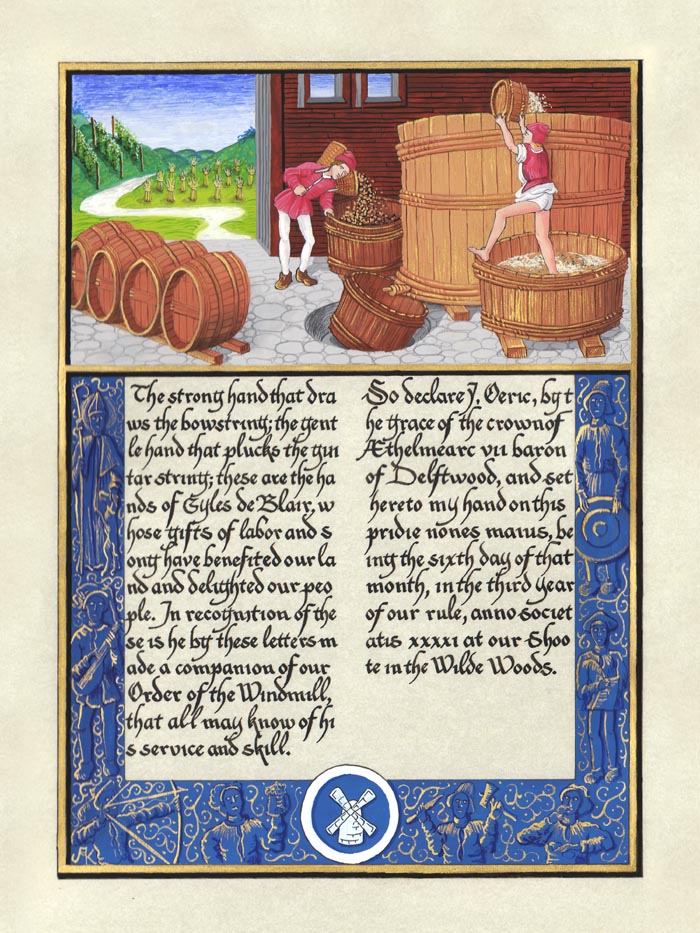 The strong hand that dra
ws the bowstring; the gent
le hand that plucks the gui
tar string; these are the ha
nds of Gyles de Blair, w
hose gifts of labor and s
ong have benefited our la
nd and delighted our peo
ple. In recognition of the
se is he by these letters m
ade a companion of our
Order of the Windmill,
that all may know of hi
s service and skill.
So declare I, Oeric, by t
he grace of the crown of
Æthelmearc vii baron
of Delftwood, and set
hereto my hand on this
pridie nones maius, be
ing the sixth day of that
month, in the third year
of our rule, anno societ
atis xxxxi at our Shoo
te in the Wilde Woods.